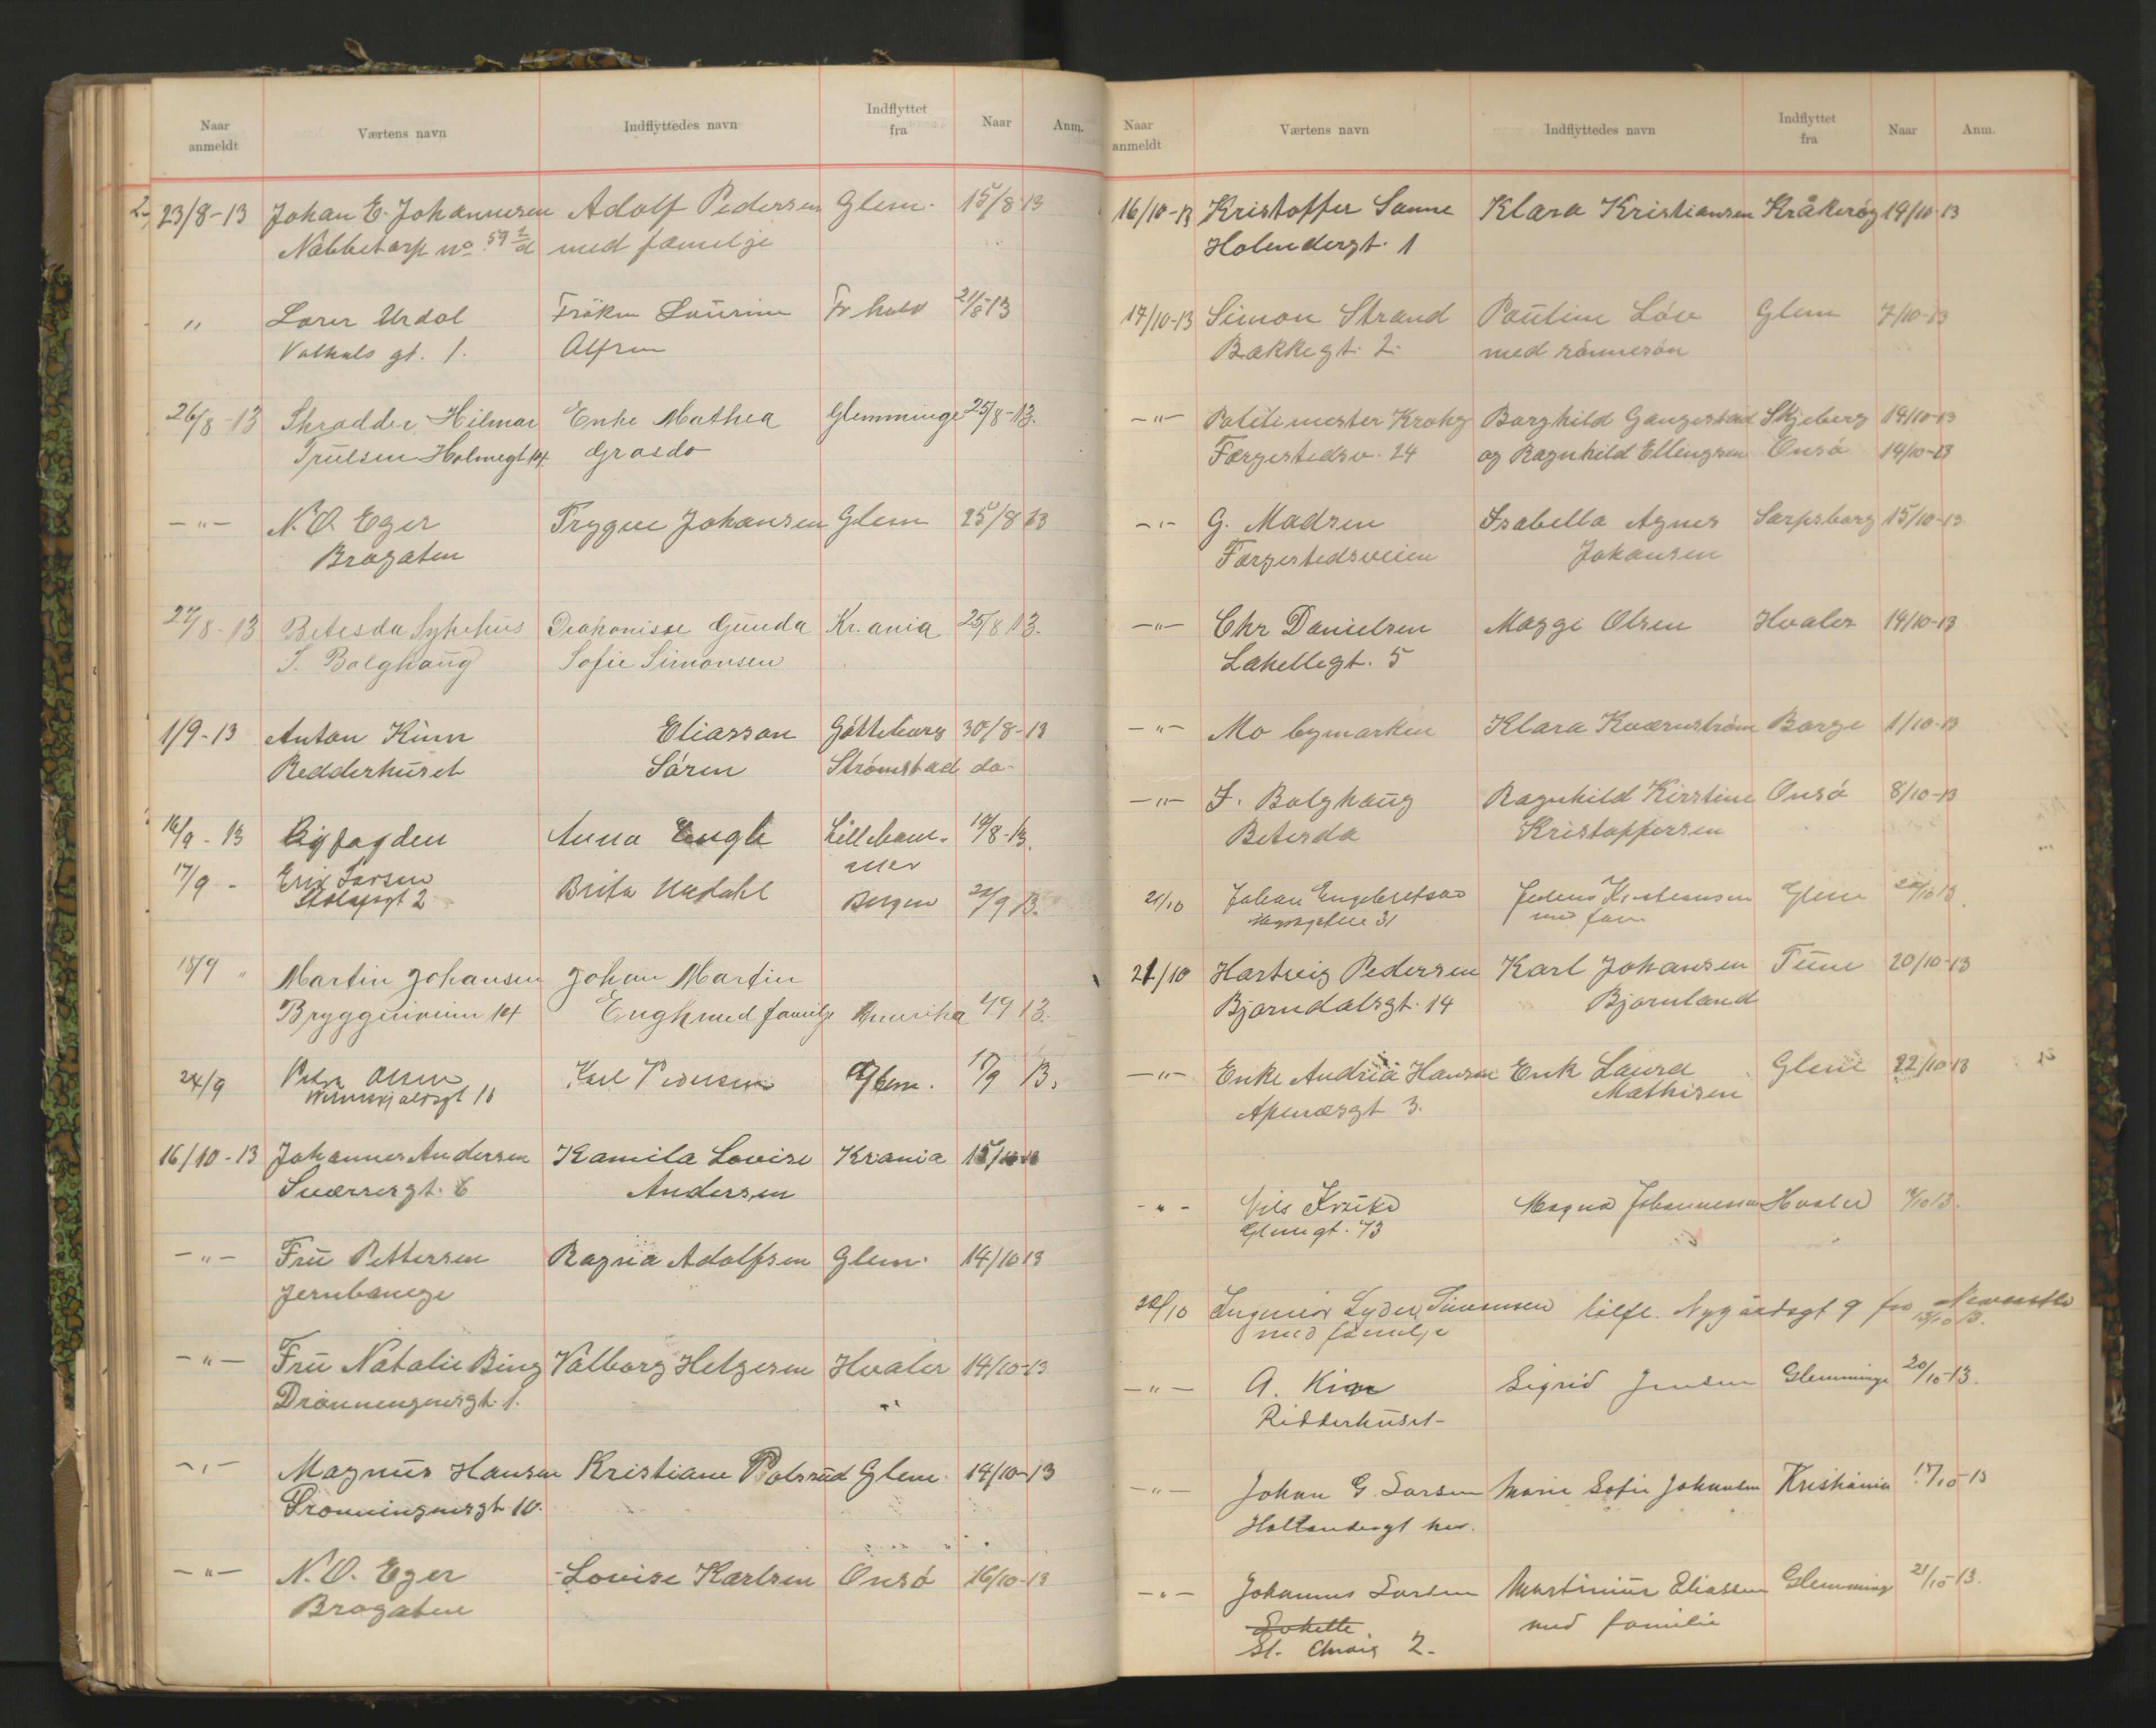 Naar anmeldt Værtens navn Indflyttedes navn Indflyttet fra Naar Anm.
23/8-13 Johan E. Johannesen Adolf Pedersen Glem. 15/8 13
Nabbetorp no 59 med familje
" Urdal Frøken Laurine 21/8 13
Valhals gt. 1.
26/8-13 Shrødder Hilmar Enke Mathea Glemminge 25/8-13.
Trulsen Holmegt 14. Grasdo
-"- N. O. Eger Trygve Johansen Glem 25/8 13
Brogaten
27/8-13 Betesda Sykehus Diakonisse Gunda Kr.ania 25/8 13.
S. Bolghaug Sofie Simonsen
1/9-13 Anton Kiær Eliasson Gøtteborg 30/8-13
Redderhuset Søren Strømstad do-
16/9-13 Bigfogden Anna Engh Lilleham- 14/8-13.
mer
17/9 - Erik Larsen Brita Bergen 21/9 13.
gt 2
18/9 " Martin Johansen Johan Martin
14 Engh med familje Amerika 4/9 13.
24/9 Petra Olsen Karl Pedersen Glem. 17/9 13.
16/10-13 Johannes Andersen Kamila Lovise Krania 15/10 13
Sværresgt. 6 Andersen
-"- Fru Pettersen Ragna Adolfsen Glem. 14/10 13
Jernbanege
-"- Fru Natalie Bing Valborg Helgesen Hvaler 14/10-13
Dronningensgt. 1.
-"- Magnus Hansen Kristiane Polsrud Glem. 14/10-13
Dronningensgt 10.
-"- N. O. Eger Lovise Karlsen Onsø 16/10-13
Brogaten
Naar anmeldt Værtens navn Indflyttedes navn Indflyttet fra Naar Anm.
16/10-13 Kristoffer Sanne Klara Kristiansen Kråkerøy 14/10-13
Holendergt. 1
17/10-13 Simon Strand Pauline Løv Glem 7/10-13
Bakkegt. 2. med sønnesøn
-"- Politimester Krohg Borghild Gangestad Skjeberg 14/10-13
Færgestedsv. 24 og Ragnhild Ellingsen Onsø 14/10-13
-"- G. Madsen Isabella Agnes Sarpsborg 15/10-13
Færgestedsveien Johansen
-"- Chr Danielsen Maggi Olsen Hvaler 14/10-13
Lahellegt. 5
-"- Mo bymarken Klara Kværnstrøm Borge 1/10-13
-"- I. Bolghaug Ragnhild Kirstine Onsø 8/10-13
Betesda Kristoffersen
21/10 Johan Engebretsen Kristiansen Glem 20/10 13.
31 med fam
21/10 Hartvig Pedersen Karl Johansen Tune 20/10-13
Bjørndalsgt. 14 Bjørnland
-"- Enke Andrea Hansen Enk Laura Glem 22/10 13
Apenæsgt 3. Mathisen
-"- Nils Kruke Magna Johannessen Hvaler 13.
Glemgt. 73
22/10 Ingeniør Lyder Simonsen tilfl. Nygårdsgt 9 fra Newcastle
med familje 13/10 13.
-"- A. Kiær Sigrid Jensen Glemminge 20/10-13.
Ridderhuset-
-"- Johan G. Larsen Marie Sofie Johansen Kristiania 15/10-13
Hollendergt
-"- Johannes Larsen Martinius Eliassen Glemming 21/10-13.
Lahelle med familie
St. 2.